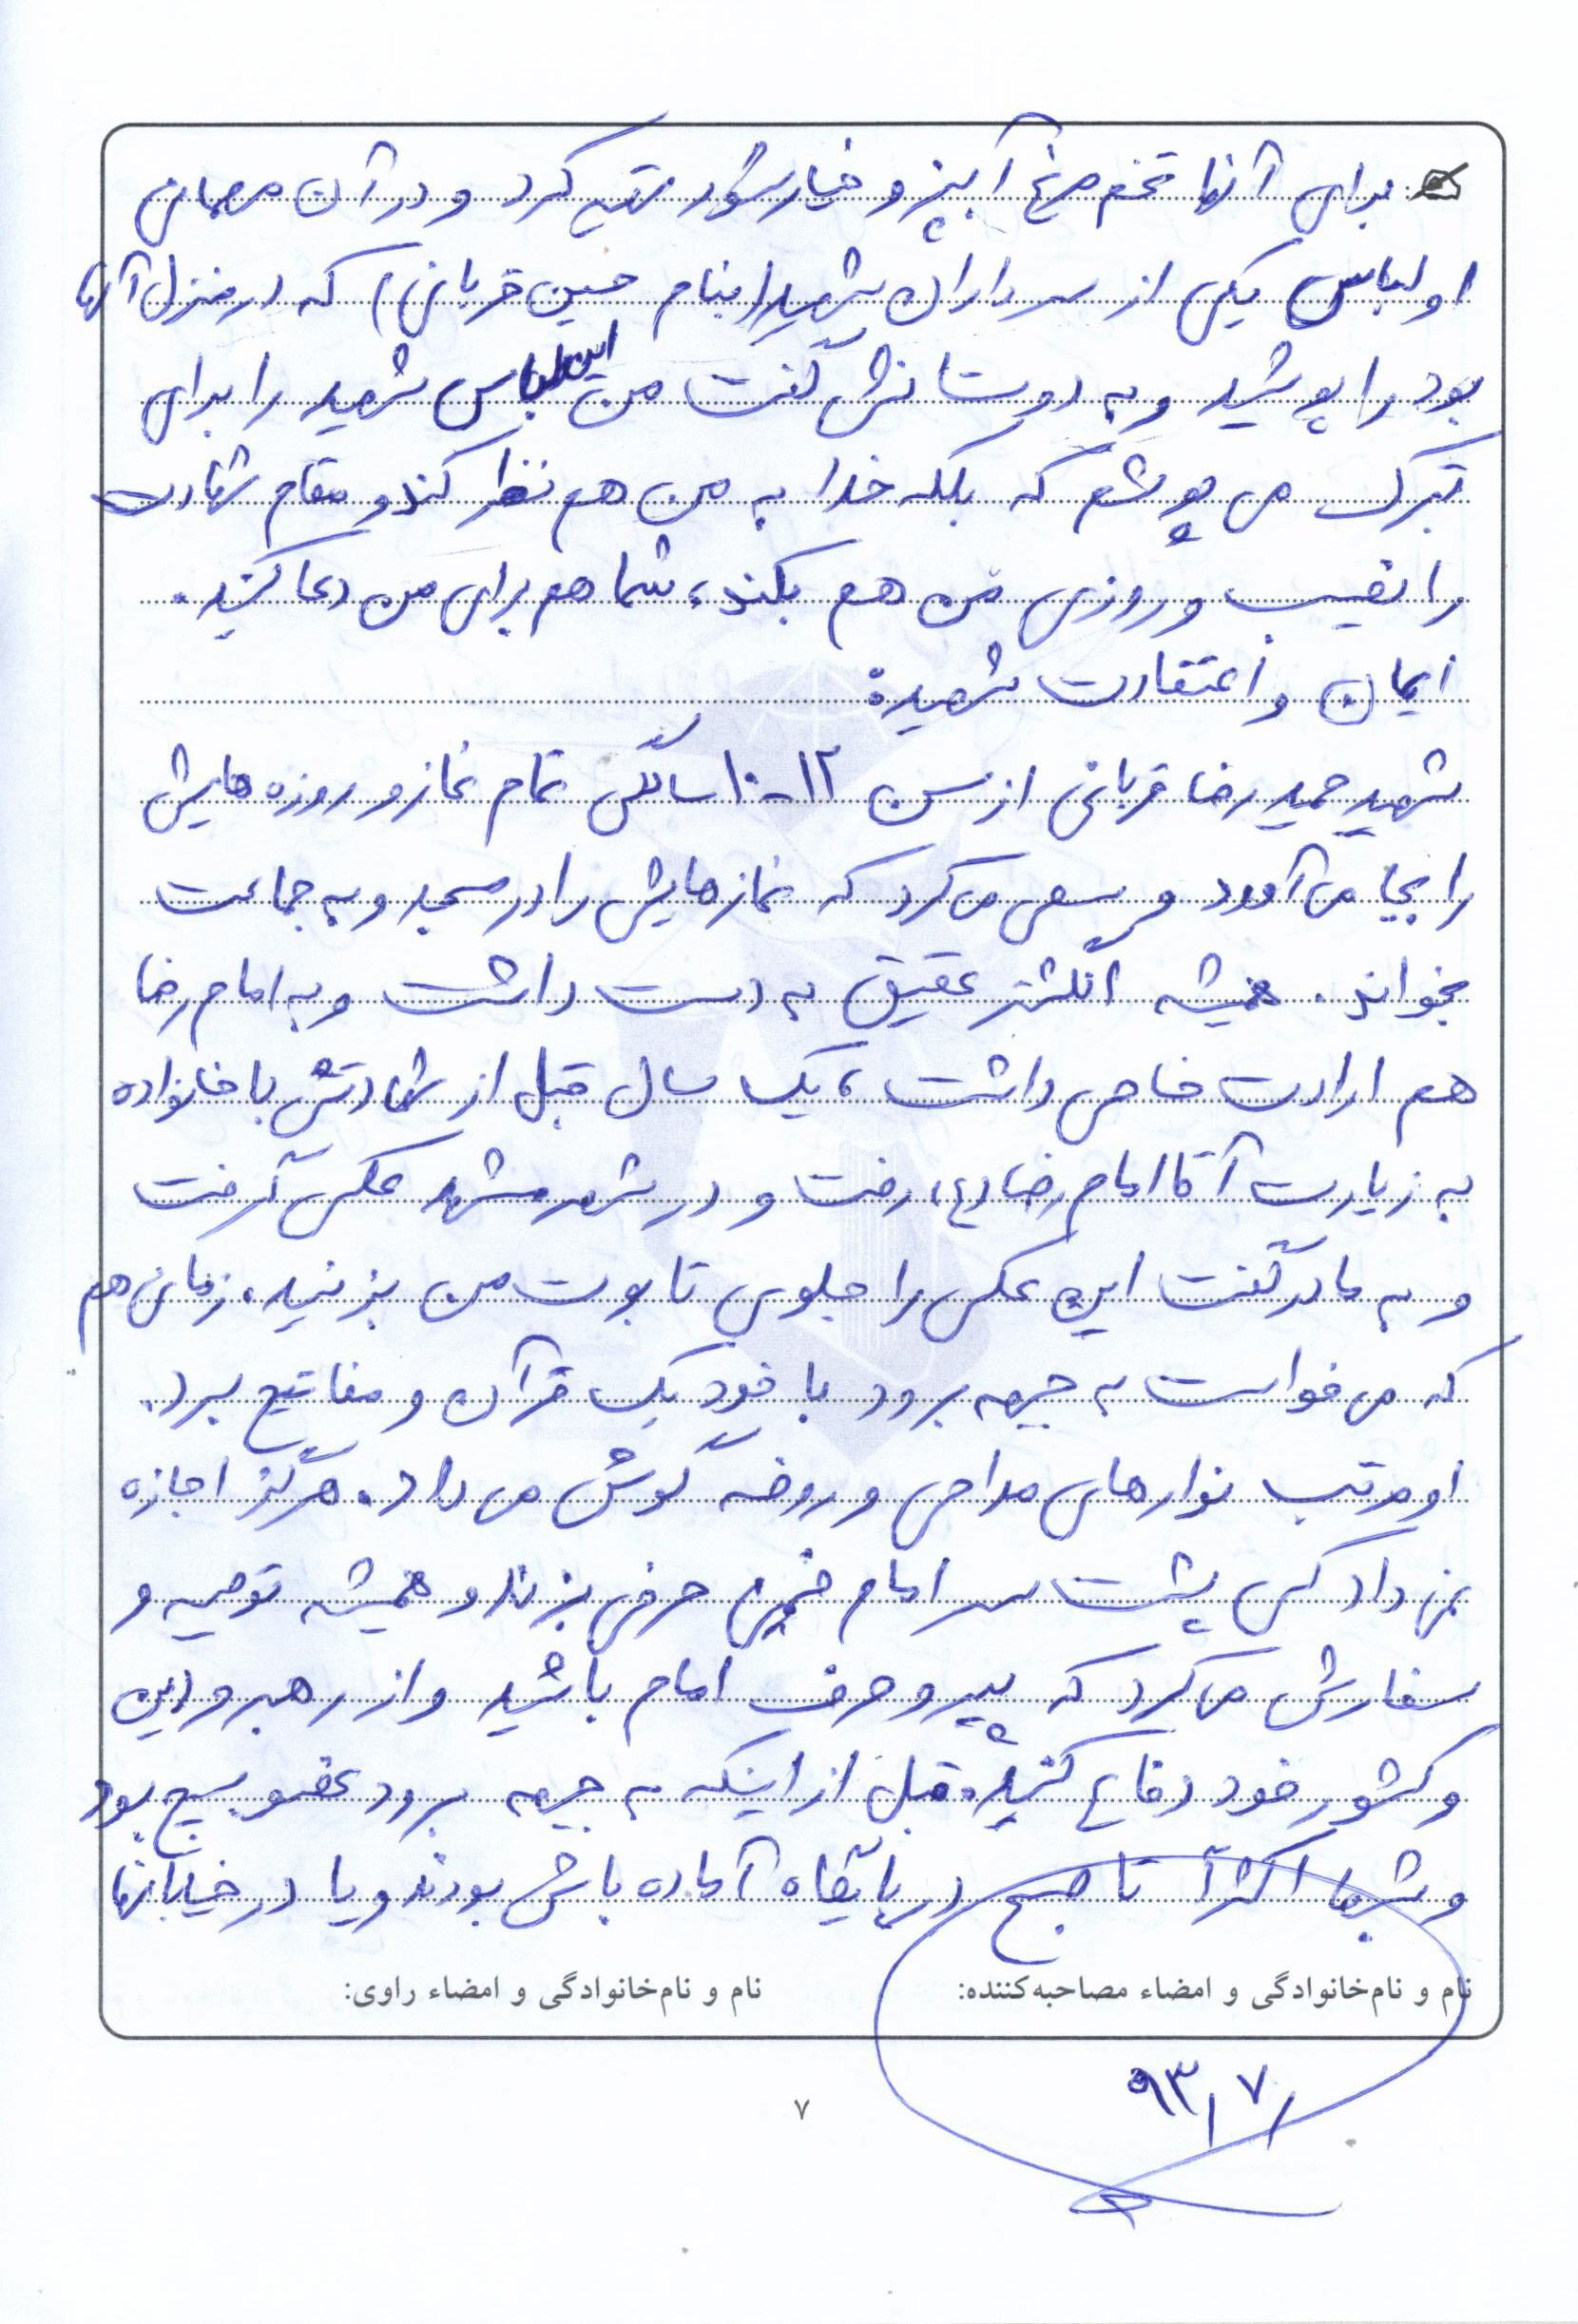 برای آنها تخم مرغ آبپز و خیارشور تهیه کرد و در آن مهمانی
او لباس یکی از سرداران شهید (بنام حسین قربانی) که در منزل آنها
بود را پوشید و به دوستانش گفت من این لباس شهید را برای
تبرک می پوشم که بلکه خدا به من هم نظر کند و مقام شهادت
را نصیب و روزی من هم بکند، شما هم برای من دعا کنید.
ایمان و اعتقادت شهید:
شهید حمید رضا قربانی از سن ۱۲-۱۰ سالگی تمام نماز و روزه هایش
را بجا می آورد و سعی می کرد که نمازهایش را در مسجد و به جماعت
بخواند. همیشه انگشتر عقیق به دست داشت و به امام رضا
هم ارادت خاصی داشت، یک سال قبل از شهادتش با خانواده
به زیارت آقا امام رضا (ع) رفت و در شهر مشهد عکس گرفت
و به مادر گفت این عکس را جلوی تابوت من بزنید. زمانی هم
که می خواست به جبهه برود با خود یک قرآن و مفاتیح برد.
او مرتب نوارهای مداحی و روضه گوش می داد. هرگز اجازه
نمی داد کسی پشت سر امام خمینی حرفی بزند و همیشه توصیه و
سفارش می کرد که پیرو حرف امام باشید و از رهبر و دین
و کشور خود دفاع کنید. قبل از اینکه به جبهه برود عضو بسیج بود
و شبها اکثراً تا صبح در پایگاه آماده باش بودند و یا در خیابانها
نام و نام‌خانوادگی و امضاء مصاحبه‌کننده: نام و نام‌خانوادگی و امضاء راوی:
۹۳/۷/
۷